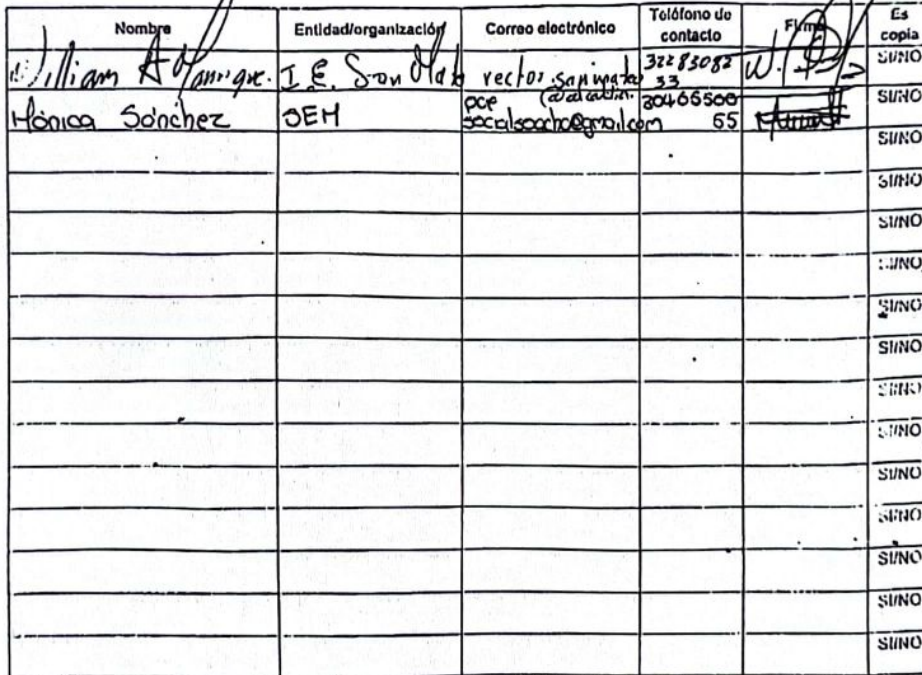 Nombre Entidad/organización Correo electrónico Teléfono de contacto Firma Es copia
William A Manrique. I.E. San Mateo 32283082 33 SI/NO
Mónica Sánchez SEM pce socialsoacha@gmail.com 30466500 65 SI/NO
SI/NO
SI/NO
SI/NO
SI/NO
SI/NO
SI/NO
SI/NO
SI/NO
SI/NO
SI/NO
SI/NO
SI/NO
SI/NO